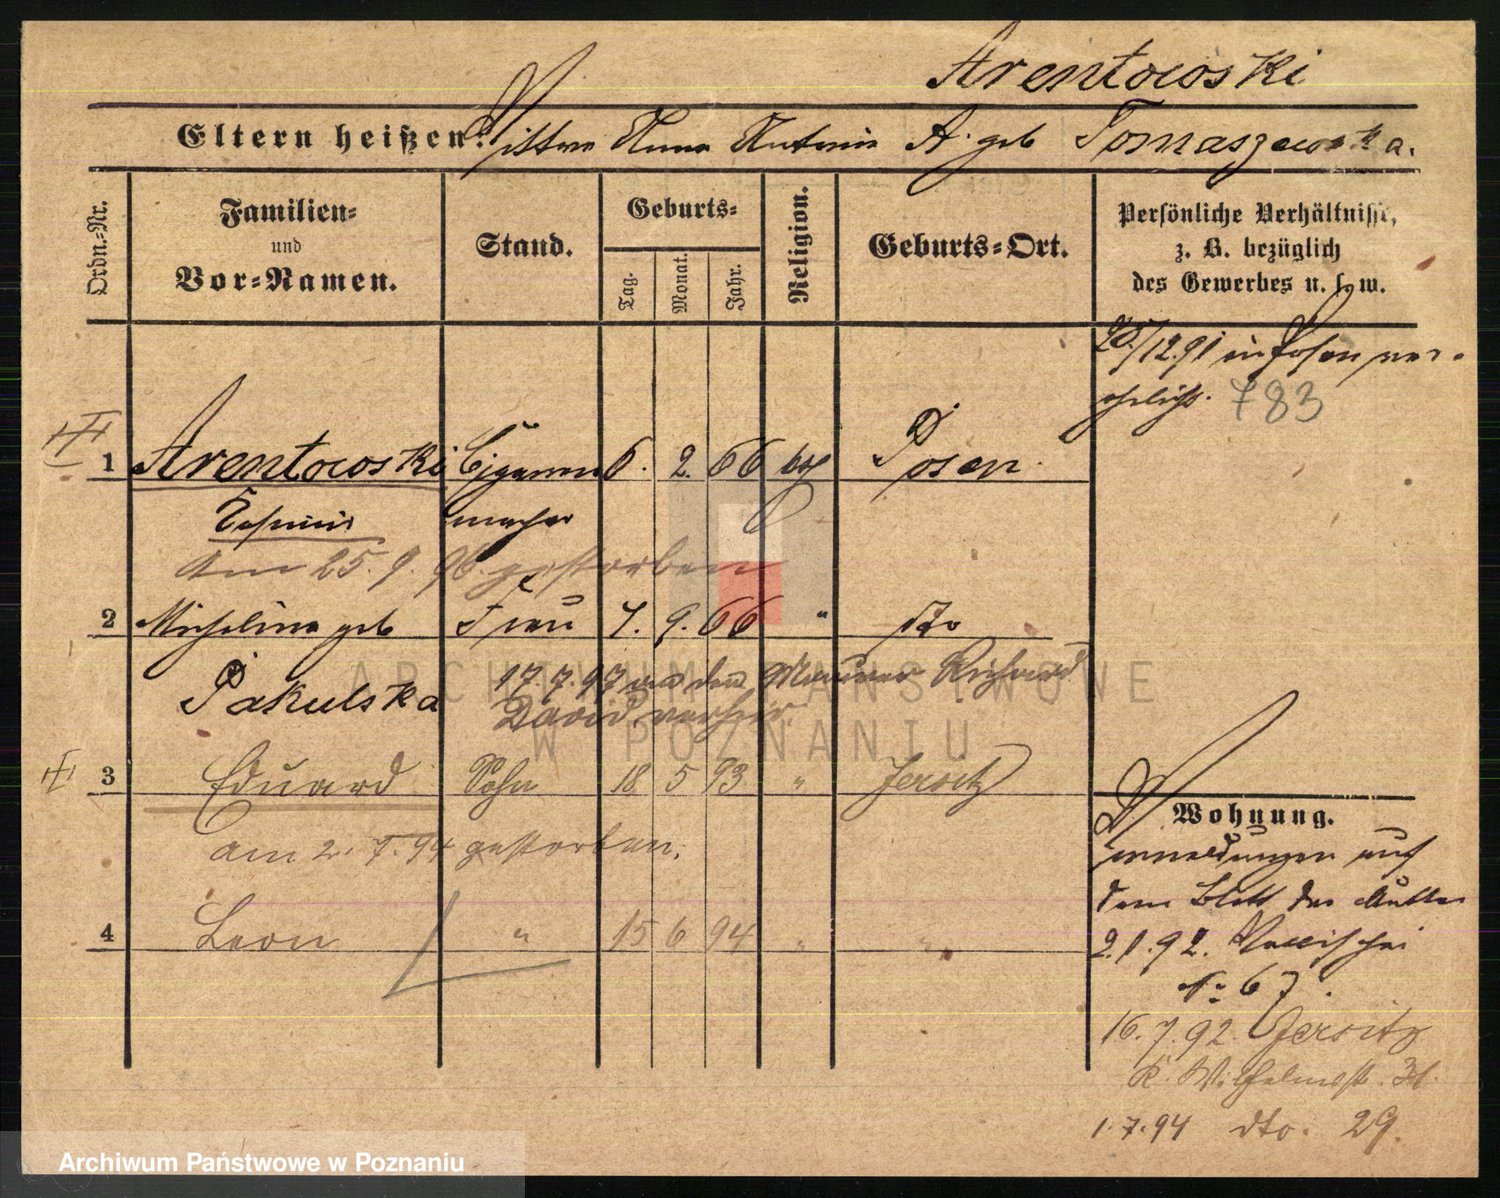 Arentowski
Eltern heißen: Antonie A. geb Tomaszewska.
Ordn.-Nr.
Familien-
und
Vor-Namen.
Stand.
Geburts-
Tag.
Monat.
Jahr.
Religion.
Geburts-Ort.
Persönliche Verhältnisse,
z. B. bezüglich
des Gewerbes u. s. w.
/12.91 in Posen ver-
ehelicht. 783
1 Arentowski Cigarren 6. 2. 66 kth Posen
Casimir macher
Am 25.9.96. gestorben
2 Micheline geb Frau 7. 9. 66 " dto
Pakulska
17.7.97 den Maurer Richard
David verheir.
3 Eduard Sohn 18 5 93 " Jersitz
am 2.7.94 gestorben.
4 Leon " 15 6 94 " "
Wohnung.
Anmeldungen auf
dem Blatt der Mutter
2.1.92. Wallischei
No 67.
16.7.92. Jersitz
K. Wilhelmst. 31.
1.7.94 dto. 29.
ARCHIWUM PAŃSTWOWE
W POZNANIU
Archiwum Państwowe w Poznaniu